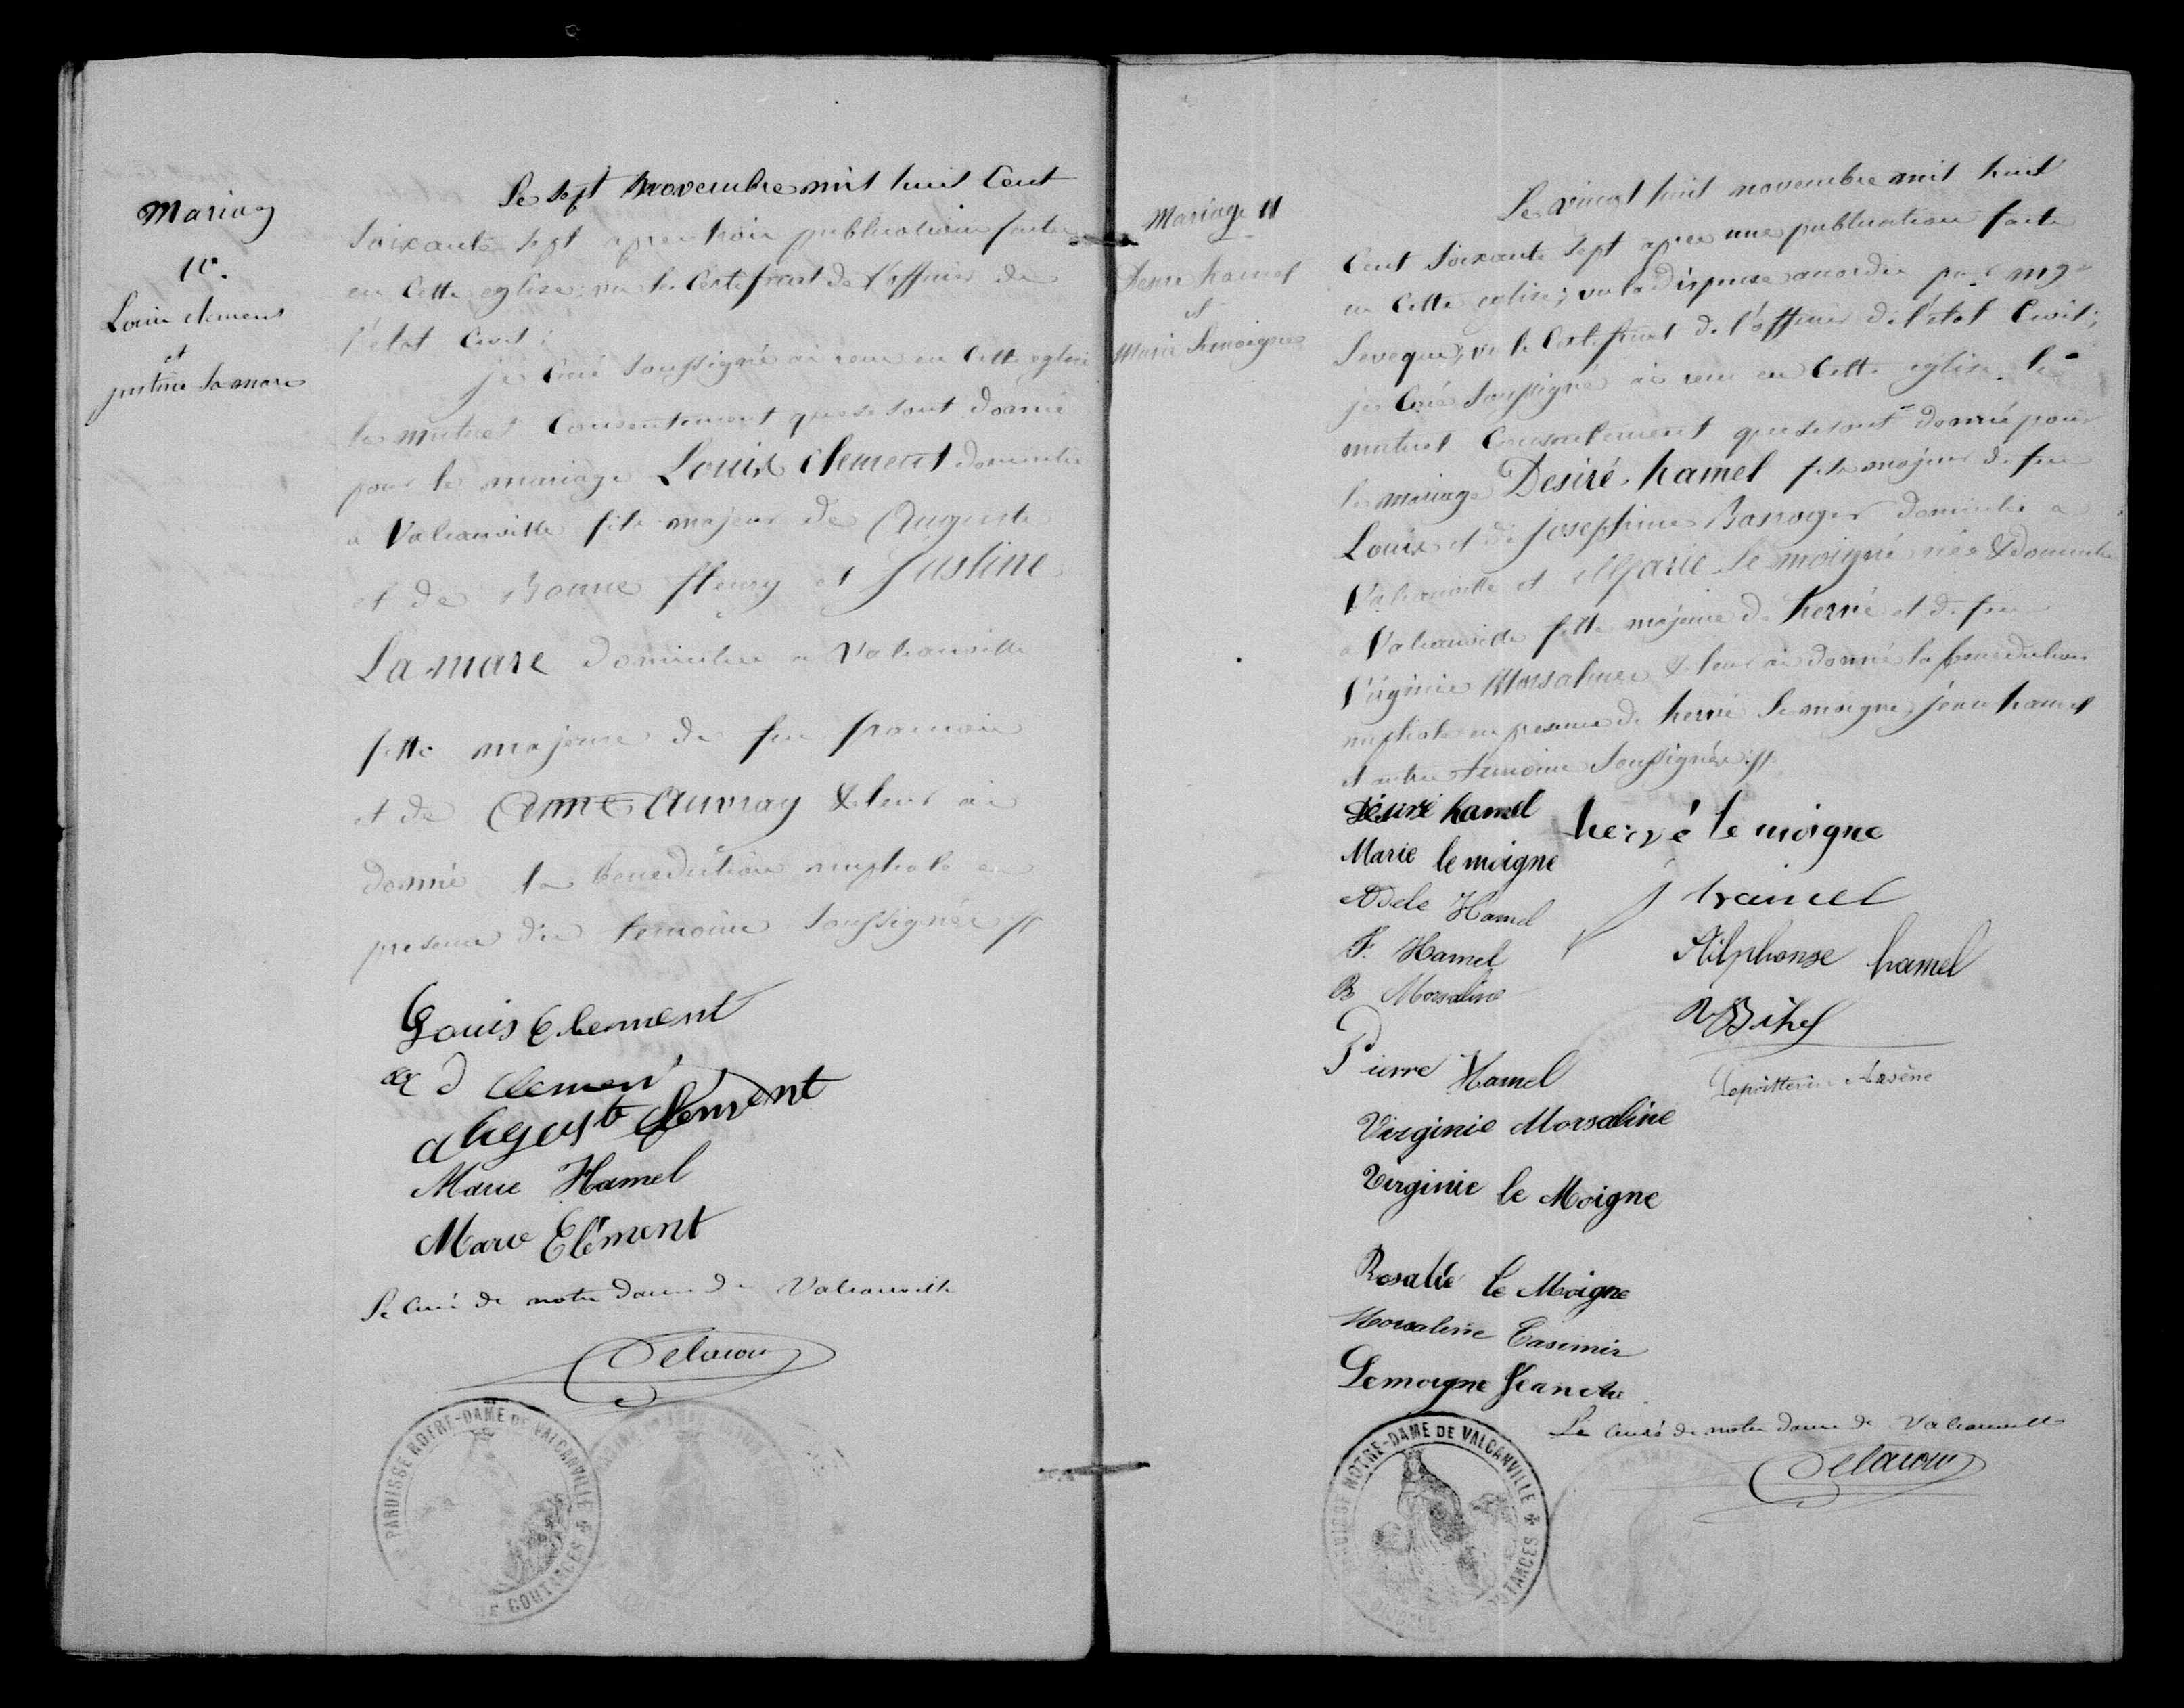 Mariag
10.
Louis clement
et
justine Lamare
Le sept novembre mil huit Cent
Soixante sept apres trois publications faites
en cette eglise; vu le Certificat de l'officier de
l'état Civil;
je Curé Soussigné ai recu en Cette eglise
le mutuel Consentement que se sont donné
pour le mariage Louis clement domicilié
a Valcanville fils majeur de Auguste
et de Bonne fleury et Justine
La mare domiciliée a Valcanville
fille majeure de feu francois
et de Anne Auvray & leur ai
donné la benediction nuptiale en
presence des temoins Soussignés //
Louis Clement
d Clement
augusts Clement
Marie Hamel
Marie Clément
Le Curé de notre dame de Valcanville
Delacour
PAROISSE NOTRE-DAME DE VALCANVILLE
DE COUTANCES
Mariage 11
Desire hamel
et
Marie Lemoigne
Le vingt huit novembre mil huit
Cent Soixante sept apres une publication faite
en Cette eglise; vu la dispense accordée par Mgr
l'eveque; vu le Certificat de l'officier de l'état Civil;
je Curé Soussigné ai recu en Cette eglise le
mutuel Consentement que se sont donné pour
le mariage Desiré hamel fils majeur de feu
Louis et de josephine domicilié a
Valcanville et Marie Le moigne née & domiciliée
a Valcanville fille majeure de hervé et de feu
Virginie Morsaline & leur ai donné la benediction
nuptiale en presence de hervé Le moigne, jean hamel
et autres temoins Soussignés //
Désiré hamel
hervé le moigne
Marie le moigne
Adele Hamel
J hamel
F. Hamel
Alphonse hamel
B Morsaline
Bihel
Pierre Hamel
Lepoittevin Arsène
Virginie Morsaline
Virginie le Moigne
Rosalie le Moigne
Morsaline Casimir
Lemoigne Jean
Le Curé de notre dame de Valcanville
Delacour
PAROISSE NOTRE-DAME DE VALCANVILLE
COUTANCES